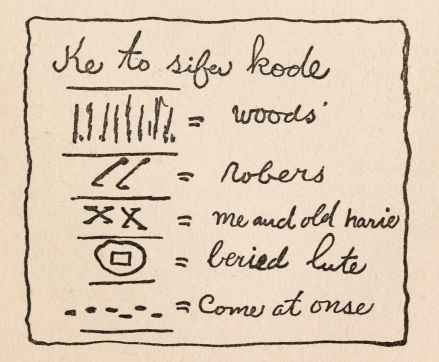 Ke to sifer kode
= woods
= robers
x x = me and old harie
= beried lute
= Come at onse